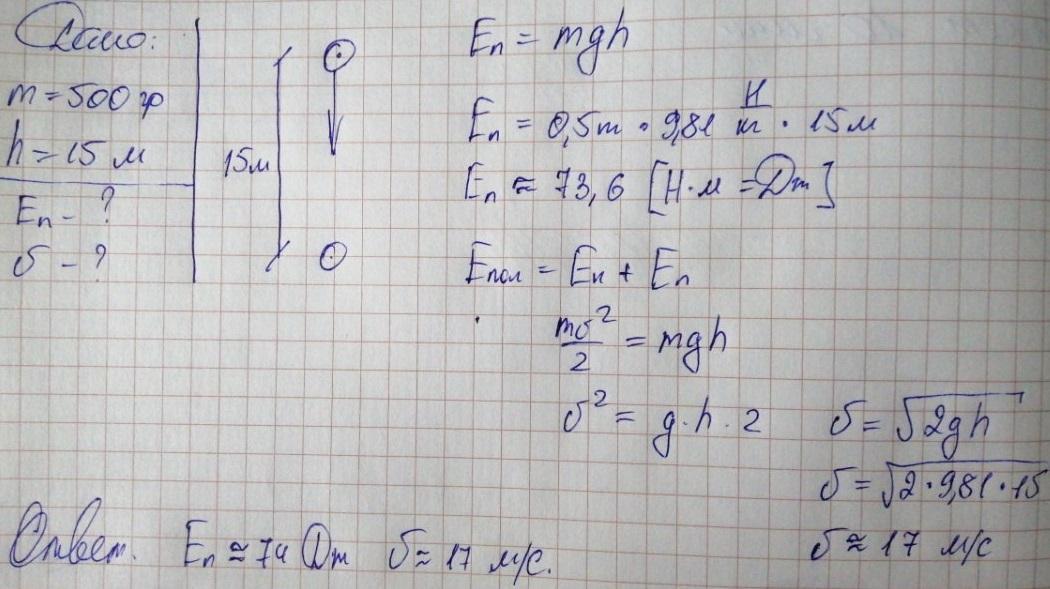 Дано:
m = 500 гр
h = 15 м
Eп - ?
σ - ?
15м
Eп = mgh
Eп = 0,5 кг · 9,81 Н/кг · 15 м
Eп ≈ 73,6 [Н·м = Дж]
Eпол = Eк + Eп
mσ²/2 = mgh
σ² = g·h·2
σ = √2gh
σ = √2·9,81·15
σ ≈ 17 м/с
Ответ. Eп ≈ 74 Дж σ ≈ 17 м/с.